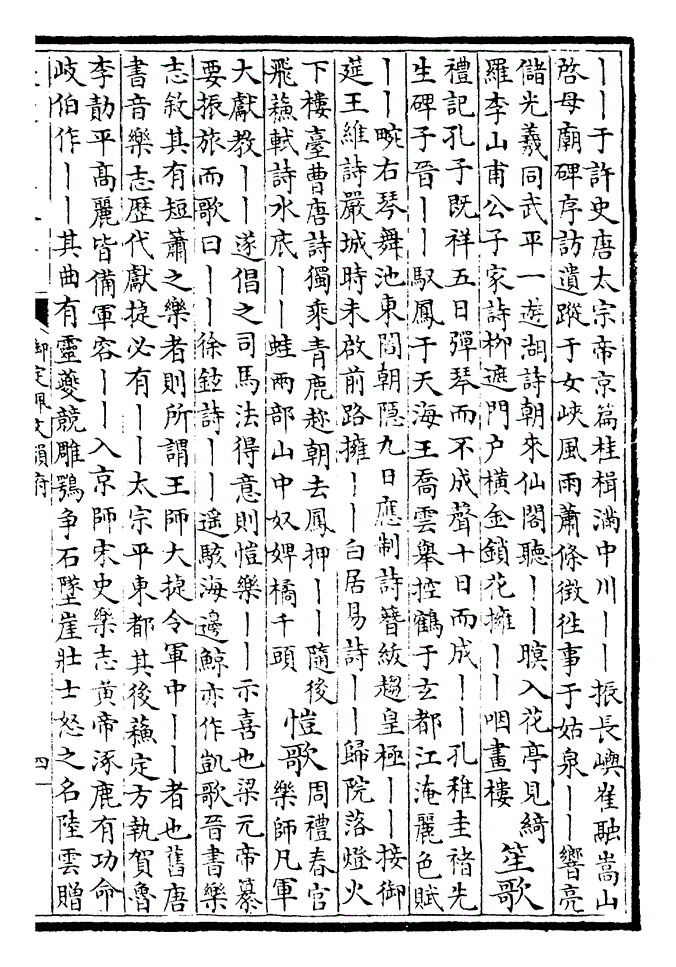 ｜｜于許史唐太宗帝京篇桂楫滿中川｜｜振長嶼崔融嵩山
啓母廟碑序訪遺蹤于女峽風雨蕭條徵往事于姑泉｜｜響亮
儲光羲同武平一遊湖詩朝來仙閣聽｜｜暝入花亭見綺
羅李山甫公子家詩柳遮門户横金鎖花擁｜｜咽畫樓
笙歌
禮記孔子既祥五日彈琴而不成聲十日而成｜｜孔稚圭褚先
生碑子晉｜｜馭鳳于天海王喬雲舉控鶴于玄都江淹麗色賦
｜｜畹右琴舞池東閻朝隱九日應制詩簪紱趨皇極｜｜接御
筵王維詩嚴城時未啟前路擁｜｜白居易詩｜｜歸院落燈火
下樓臺曹唐詩獨乘青鹿趂朝去鳳押｜｜隨後
飛蘓軾詩水底｜｜蛙兩部山中奴婢橘千頭
愷歌
周禮春官
樂師凡軍
大獻教｜｜遂倡之司馬法得意則愷樂｜｜示喜也梁元帝纂
要振旅而歌曰｜｜徐鉉詩｜｜遥駭海邊鯨亦作凱歌晉書樂
志敘其有短蕭之樂者則所謂王師大捷令軍中｜｜者也舊唐
書音樂志歷代獻捷必有｜｜太宗平東都其後蘓定方執賀魯
李勣平高麗皆備軍容｜｜入京師宋史樂志黄帝涿鹿有功命
岐伯作｜｜其曲有靈夔競雕鶚争石墜崖壯士怒之名陸雲贈
御定佩文韻府
四